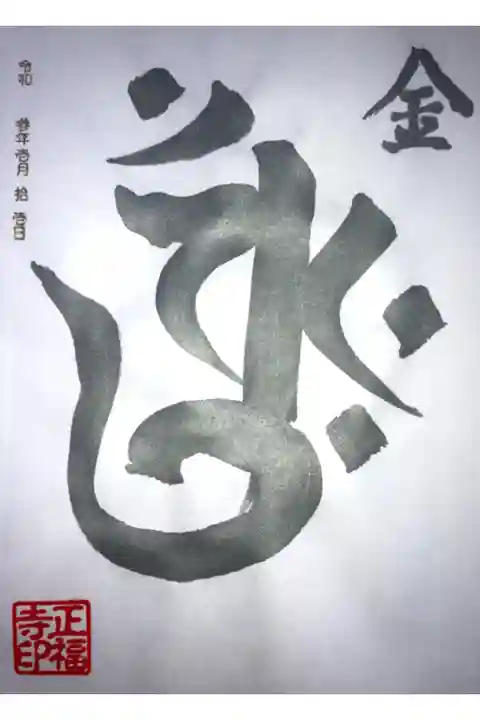 金
令和 参年壱月 拾 壱日
正福
寺印